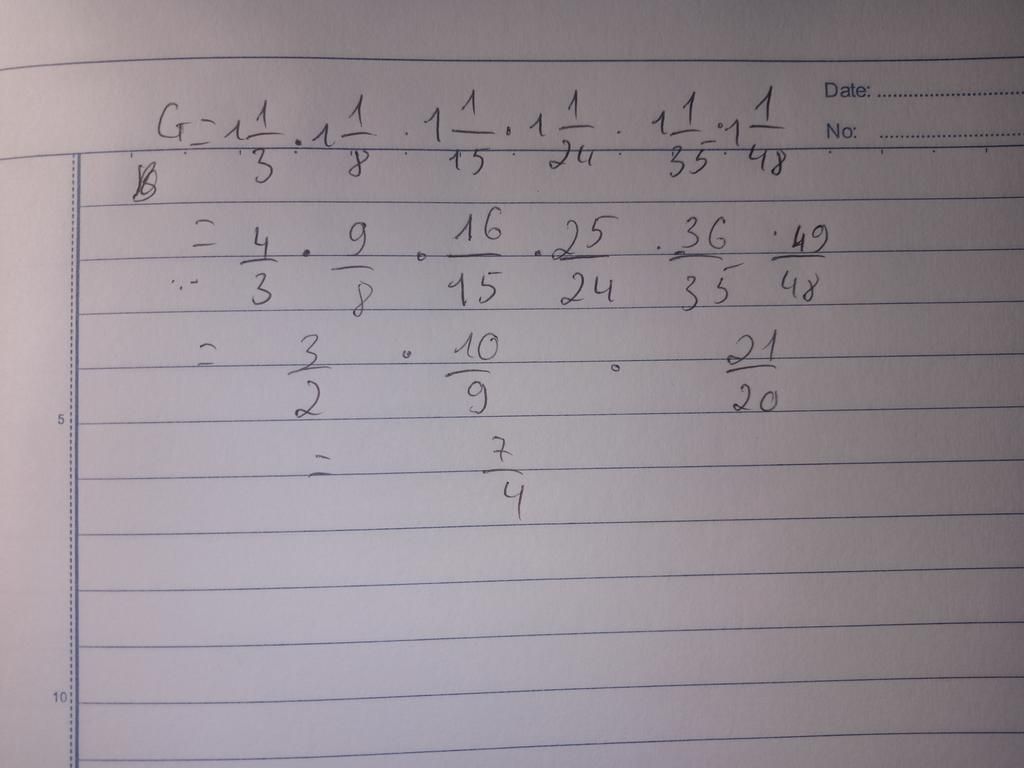 Date: ..........................
No: ..........................
G = 1 1/3 . 1 1/8 . 1 1/15 . 1 1/24 . 1 1/35 . 1 1/48
= 4/3 . 9/8 . 16/15 . 25/24 . 36/35 . 49/48
= 3/2 . 10/9 . 21/20
5
= 7/4
10